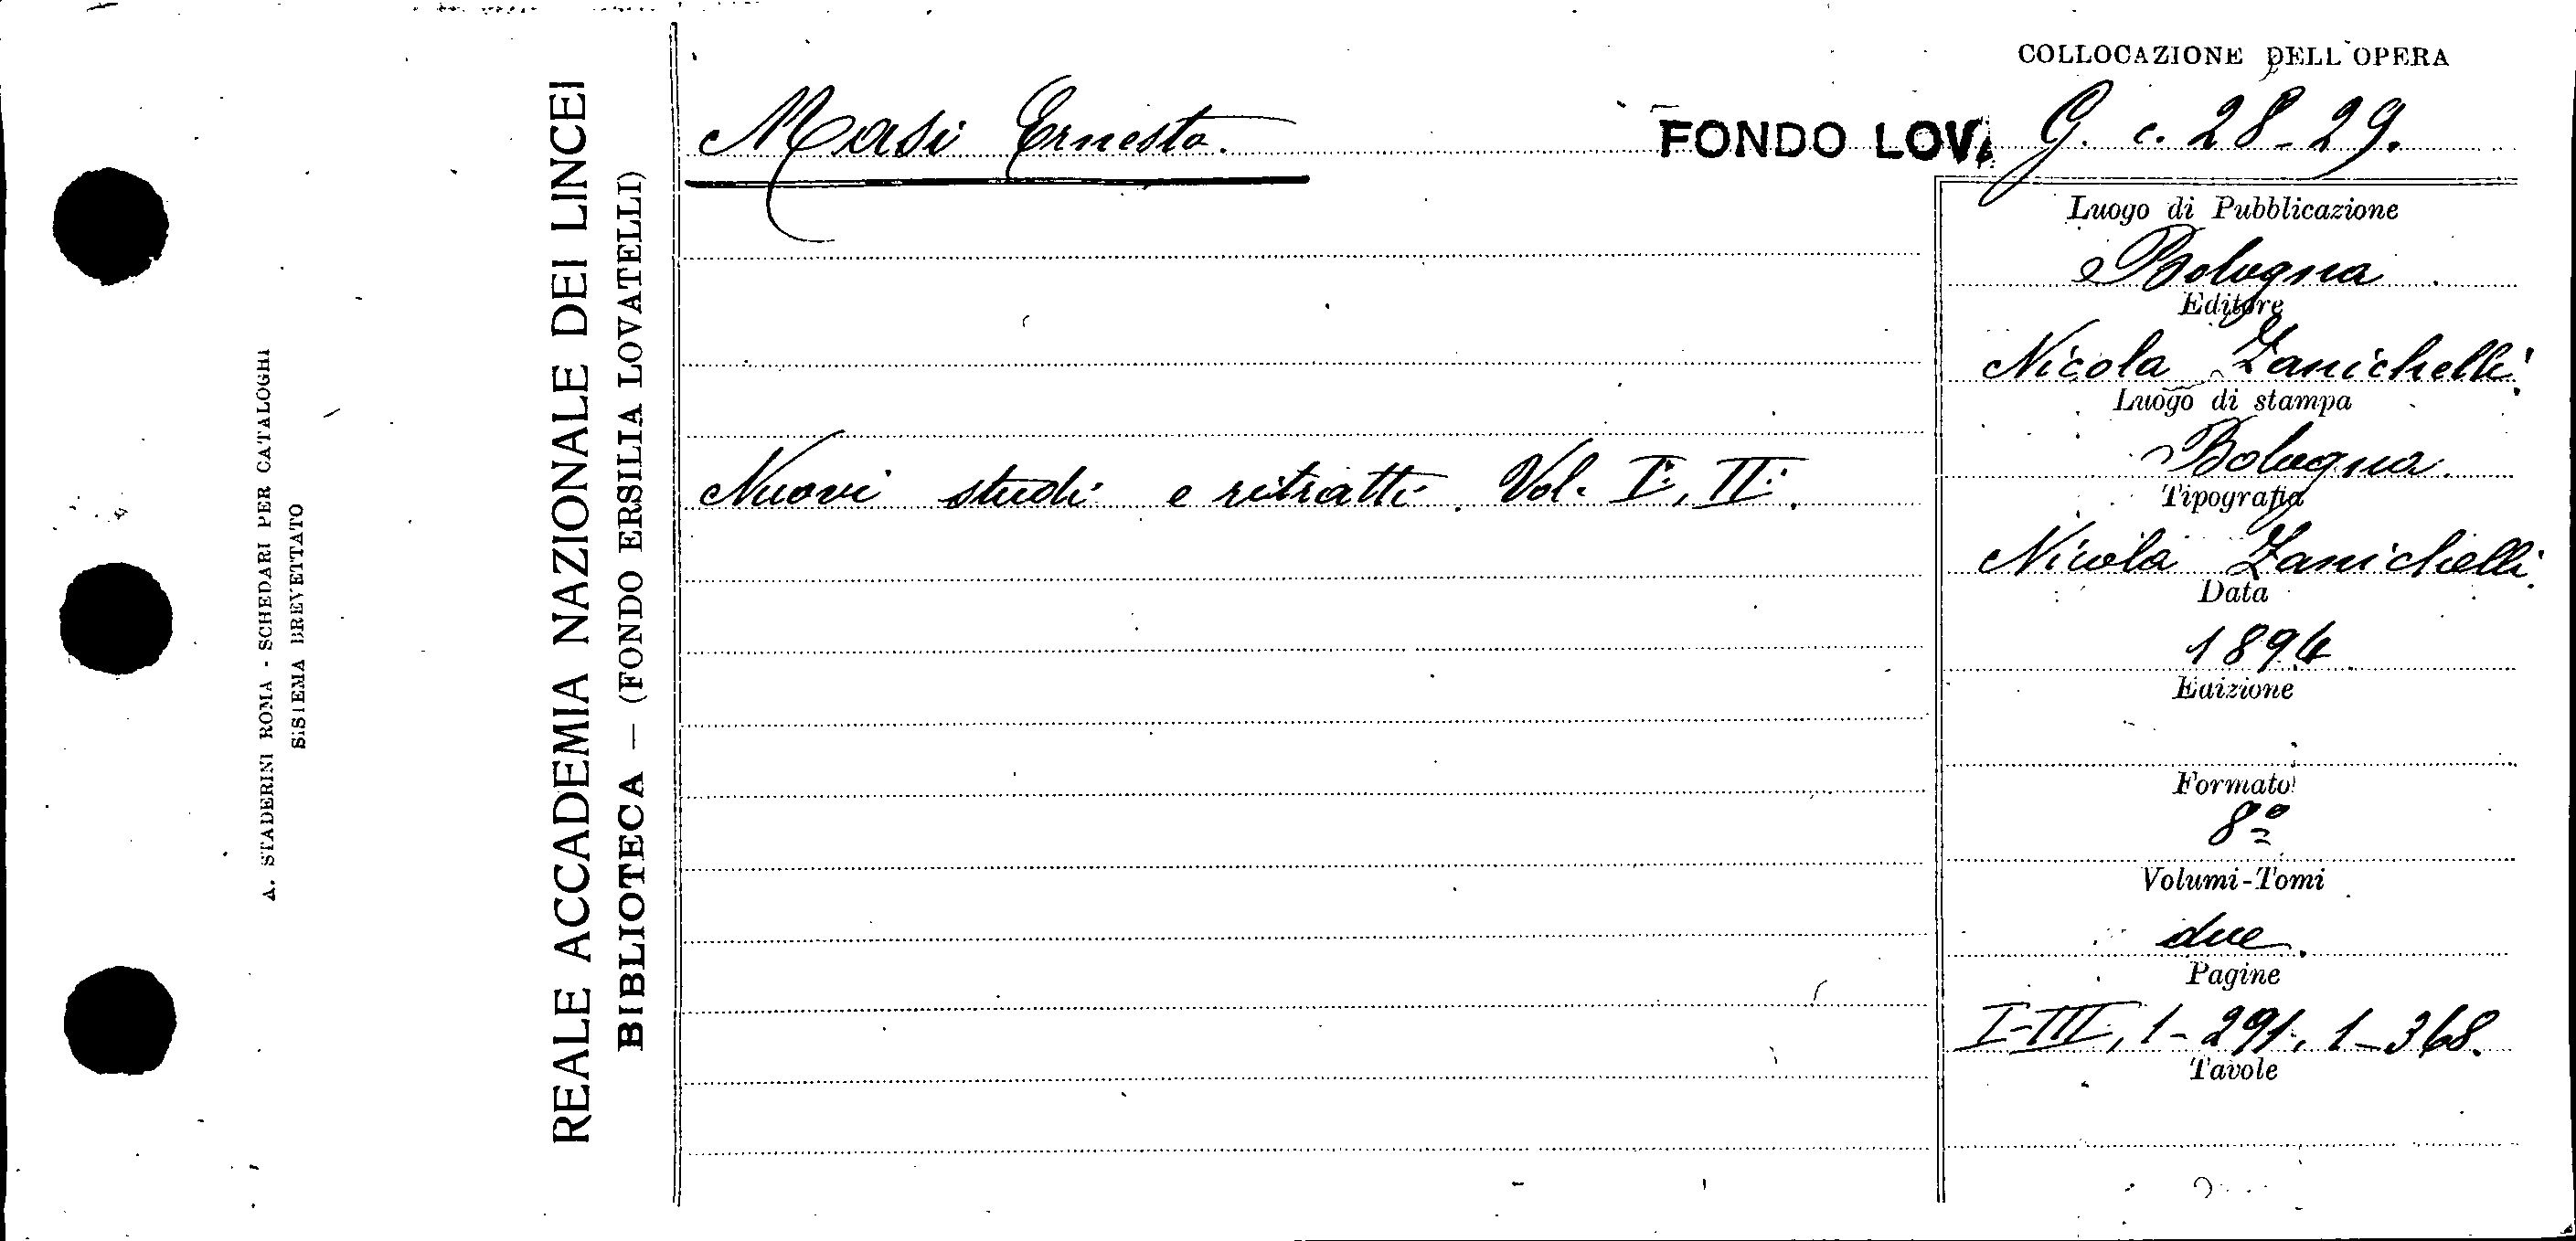 A. STADERINI ROMA - SCHEDARI PER CATALOGHI
SISTEMA BREVETTATO
REALE ACCADEMIA NAZIONALE DEI LINCEI
BIBLIOTECA — (FONDO ERSILIA LOVATELLI)
COLLOCAZIONE DELL'OPERA
Masi Ernesto. FONDO LOV. G. c. 28-29.
Luogo di Pubblicazione
Bologna
Editore
Nicola Zanichelli
Luogo di stampa
Bologna.
Nuovi studi e ritratti. Vol. I:, II:.
Tipografia
Nicola Zanichelli.
Data
1894
Edizione
Formato
8º
Volumi-Tomi
due.
Pagine
I-III, 1-291, 1-368.
Tavole